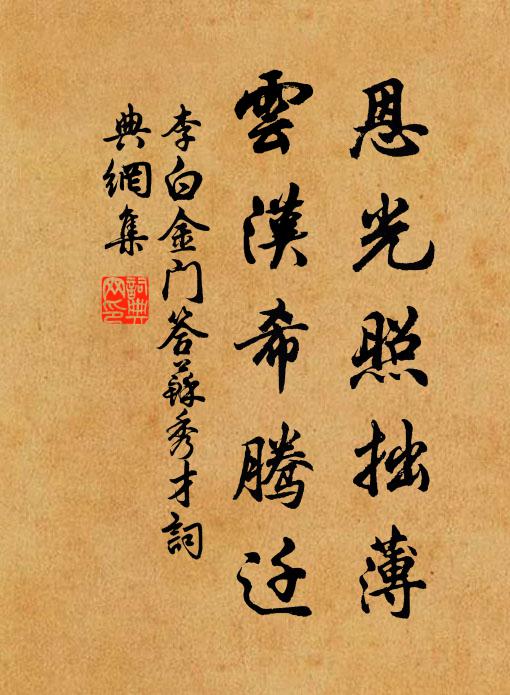 恩光照拙薄
雲漢希騰迁
李白金门答蘇秀才詞
典網集
詞典
网印